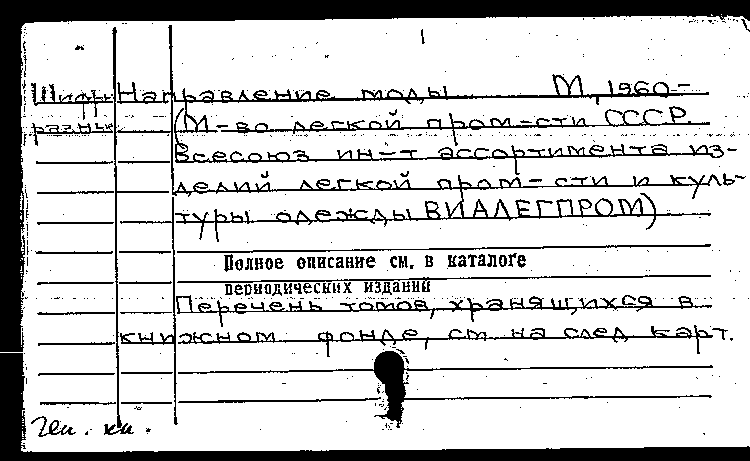 Шифры Направление моды М, 1960-
разные (М-во легкой пром-сти СССР.
Всесоюз ин-т ассортимента из-
делий легкой пром-сти и куль-
туры одежды ВИАЛЕГПРОМ)
Полное описание см. в каталоге
периодических изданий
Перечень томов, хранящихся в
книжном фонде, см на след карт.
Ген. кн.